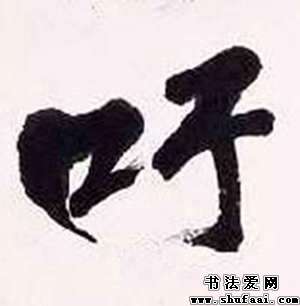 吁
书法爱网
www.shufaai.com